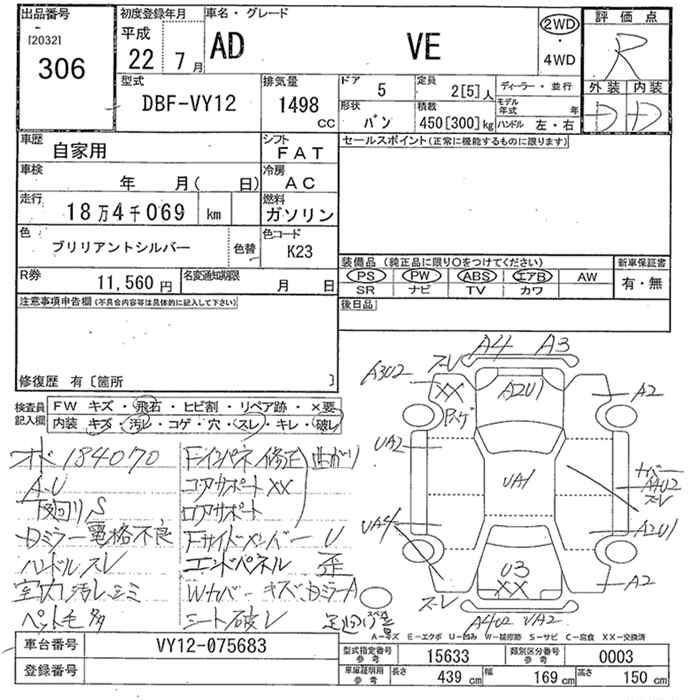 出品番号
[2032]
306
初度登録年月
平成
22 7月
車名・グレード
AD VE
2WD
・
4WD
評価点
R
外装 内装
D D
型式
DBF-VY12
排気量
1498
CC
ドア 5
定員 2[5]人
ディーラー・並行
モデル年式 年
形状 バン
積載 450[300]kg
ハンドル 左・右
車歴 自家用
シフト FAT
セールスポイント(正常に機能するものに限ります)
車検 年 月( 日)
冷房 AC
走行 18万4千069 km
燃料 ガソリン
色 ブリリアントシルバー
色替
色コード K23
R券 11,560円
名変通知期限 月 日
装備品(純正品に限り〇をつけてください)
新車保証書
PS PW ABS エアB AW
SR ナビ TV カワ
有・無
後日品
注意事項申告欄(不具合内容等は具体的に記入して下さい)
修復歴 有〔箇所 〕
検査員記入欄
FW キズ・飛石・ヒビ割・リペア跡・×要
内装 キズ・汚レ・コゲ・穴・スレ・キレ・破レ
オド184070
A・U
下廻りS
Dミラー電格不良
ハンドルスレ
室内汚レシミ
ペット毛多
Fインパネ修正
コアサポートXX
ロアサポート
曲がり
FサイドメンバーU
エンドパネル 歪
Wカバーキズ・DミラーA
シート破レ
A4 A3
スーレ
A302
XX
A2U1
A2
UA2
UA1
A402
スレ
UA4
A2U1
U3
XX
A2
スーレ
A402 UA2
スペア
A-キズ E-エクボ U-凹み W-補修跡 S-サビ C-腐食 XX-交換済
車台番号 VY12-075683
登録番号
型式指定番号 参考 15633
類別区分番号 参考 0003
車庫証明用 参考
長さ 439 cm
幅 169 cm
高さ 150 cm